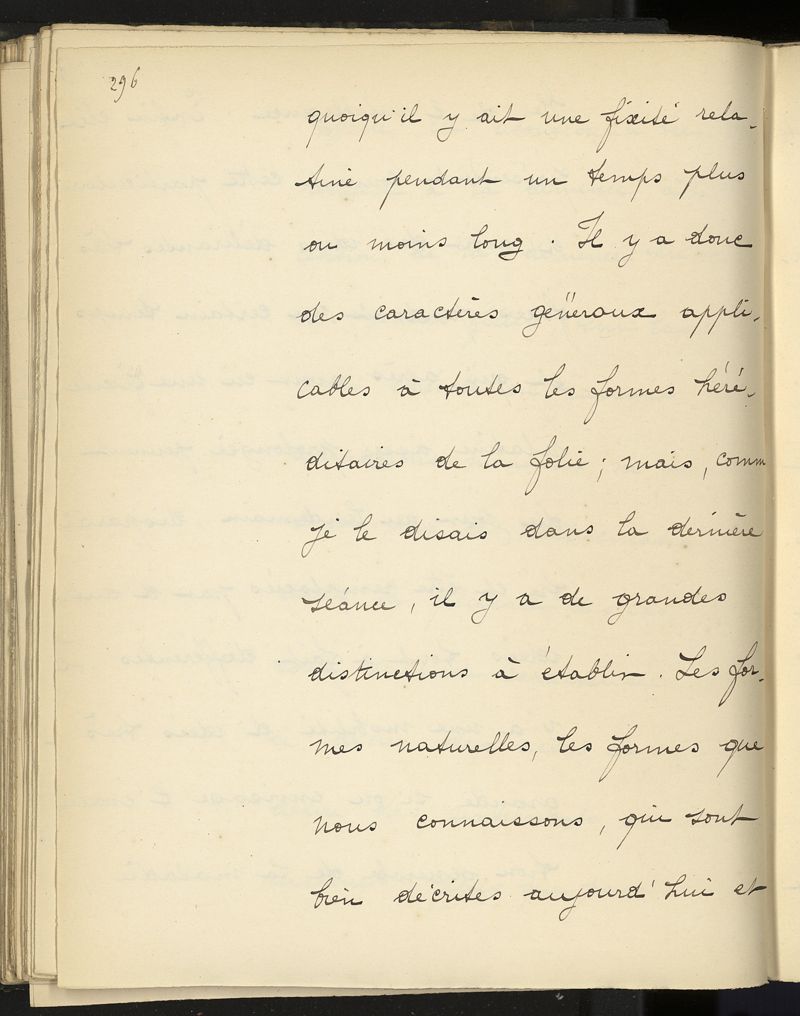 296
quoiqu'il y ait une fixité rela-
tive pendant un temps plus
ou moins long. Il y a donc
des caractères généraux appli-
cables à toutes les formes héré-
ditaires de la folie; mais, comm
je le disais dans la dernière
séance, il y a de grandes
distinctions à établir. Les for-
mes naturelles, les formes que
nous connaissons, qui sont
bien décrites aujourd'hui et